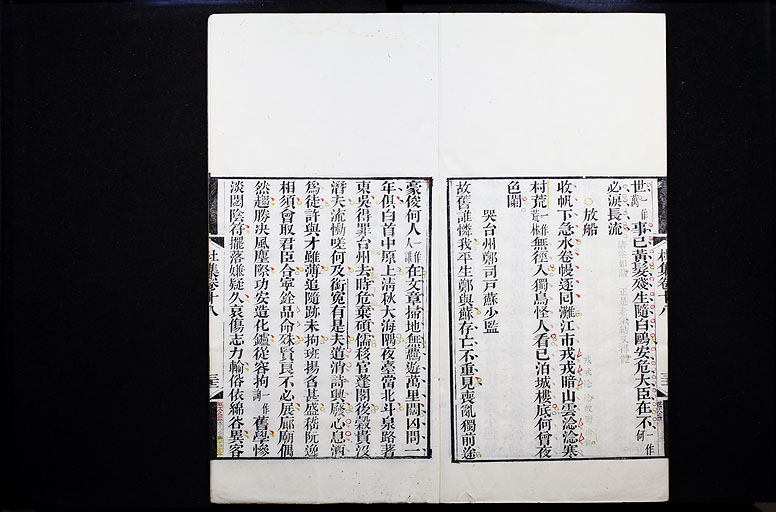 世一作萬事已黃髮殘生隨白鷗安危大臣在不一作何
必淚長流
放船
收帆下急水卷幔逐回灘江市戎戎暗山雲淰淰寒
村荒一作荒林無徑入獨鳥怪人看已泊城樓底何曾夜
色闌
哭台州鄭司戶蘇少監
故舊誰憐我平生鄭與蘇存亡不重見喪亂獨前途
豪俊何人一作人誰在文章掃地無羈遊萬里闊凶問一
年俱白首中原上清秋大海隅夜臺當北斗泉路著
東吳得罪台州去時危棄碩儒移官蓬閣後穀貴沒
潛夫流慟嗟何及銜冤有是夫道消詩興廢心息酒
為徒許與才雖薄追隨跡未拘班揚名甚盛嵇阮逸
相須會取君臣合寧銓品命殊賢良不必展廊廟偶
然趨勝決風塵際功安造化鑪從容拘一作詢舊學慘
淡閟陰符擺落嫌疑久哀傷志力輸俗依綿谷異客
杜集卷十八
杜集卷十八